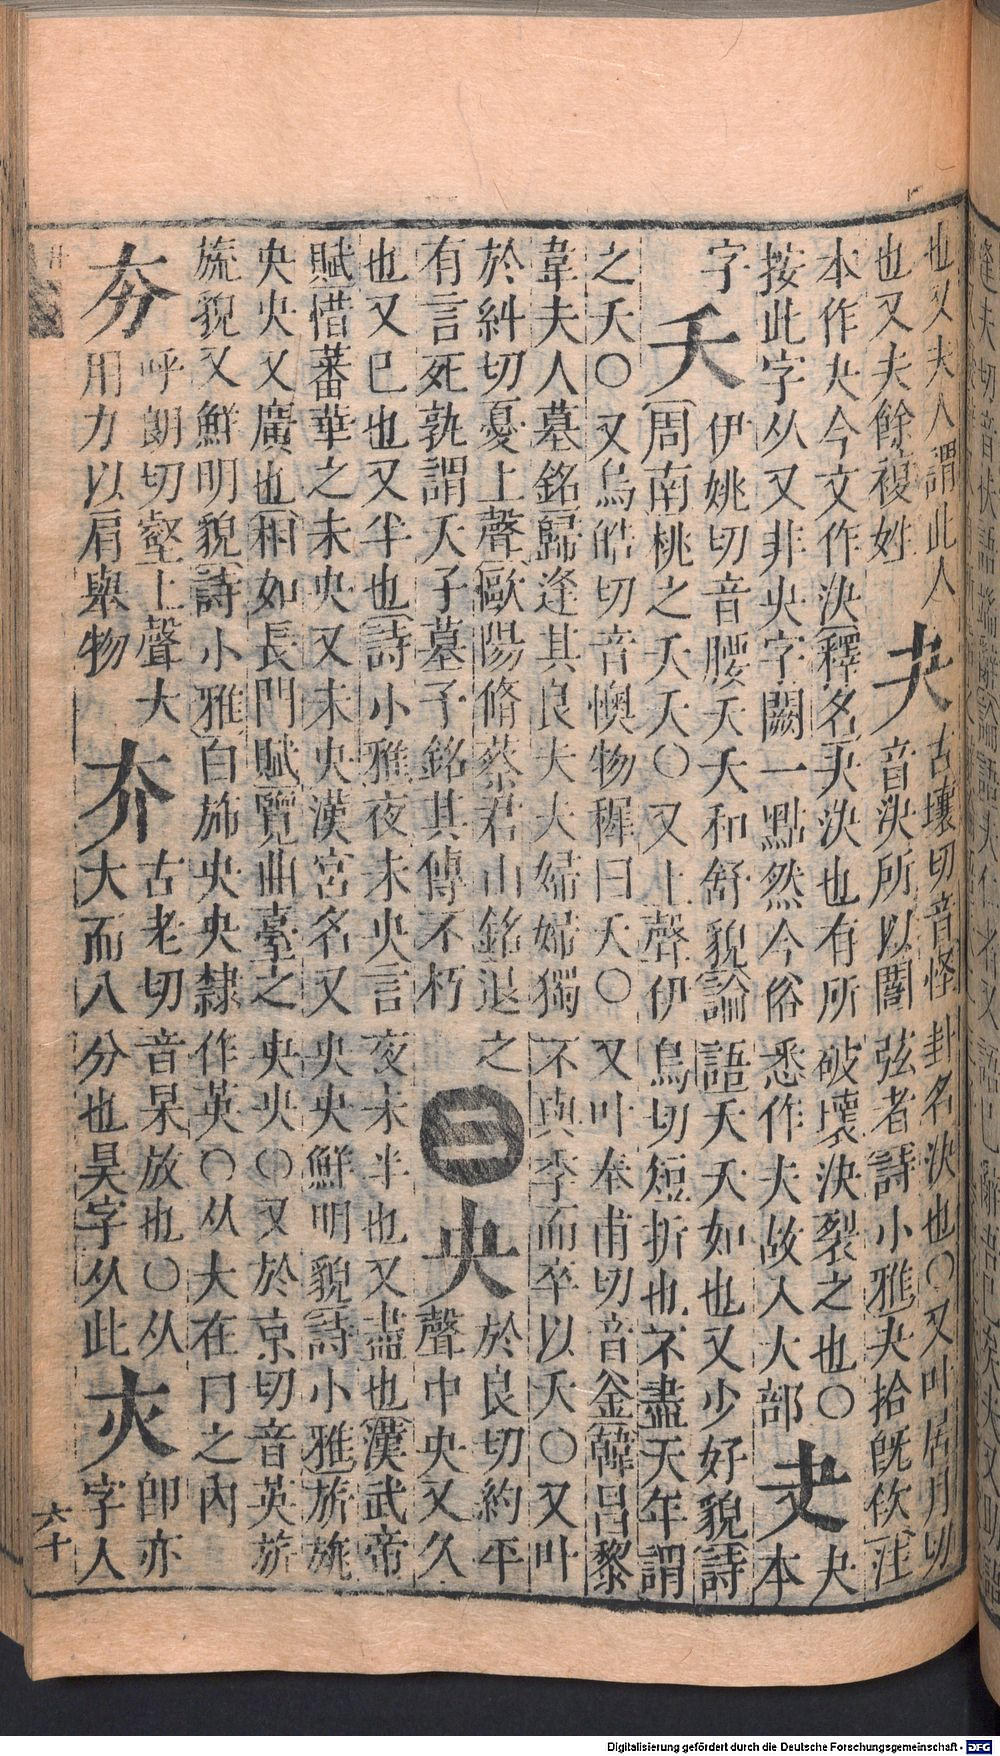 也又夫人謂此人夬古壤切音怪卦名決也○又叶居月切
也又夫餘複姓音決所以闓弦者詩小雅夬拾旣佽注
本作夬今文作決釋名夬決也有所破壞決裂之也○夬夬
按此字从又非央字闕一點然今俗悉作夫故入大部本
字夭伊姚切音腰夭夭和舒貌論語夭夭如也又少好貌詩
周南桃之夭夭○又上聲伊鳥切短折也不盡天年謂
之夭○又烏皓切音懊物穉曰夭○又叶奉甫切音釜韓呂黎
韋夫人墓銘歸逢其良夫夫婦婦獨不與季而卒以夭○又叶
於糾切憂上聲歐陽脩蔡君山銘退之㊂央於良切約平
有言死孰謂夭子墓子銘其傳不朽聲中央又久
也又已也又半也詩小雅夜未央言夜未半也又盡也漢武帝
賦惜蕃華之未央又未央漢宮名又央央鮮明貌詩小雅旂旐
央央又廣也相如長門賦覽曲臺之央央○又於京切音英旂
旐貌又鮮明貌詩小雅白旆央央隸作英○从大在冂之內
夯呼朗切壑上聲大夰古老切音杲放也○从亦卽亦
用力以肩舉物大而八分也昊字从此字人
六十
Digitalisierung gefördert durch die Deutsche Forschungsgemeinschaft - DFG